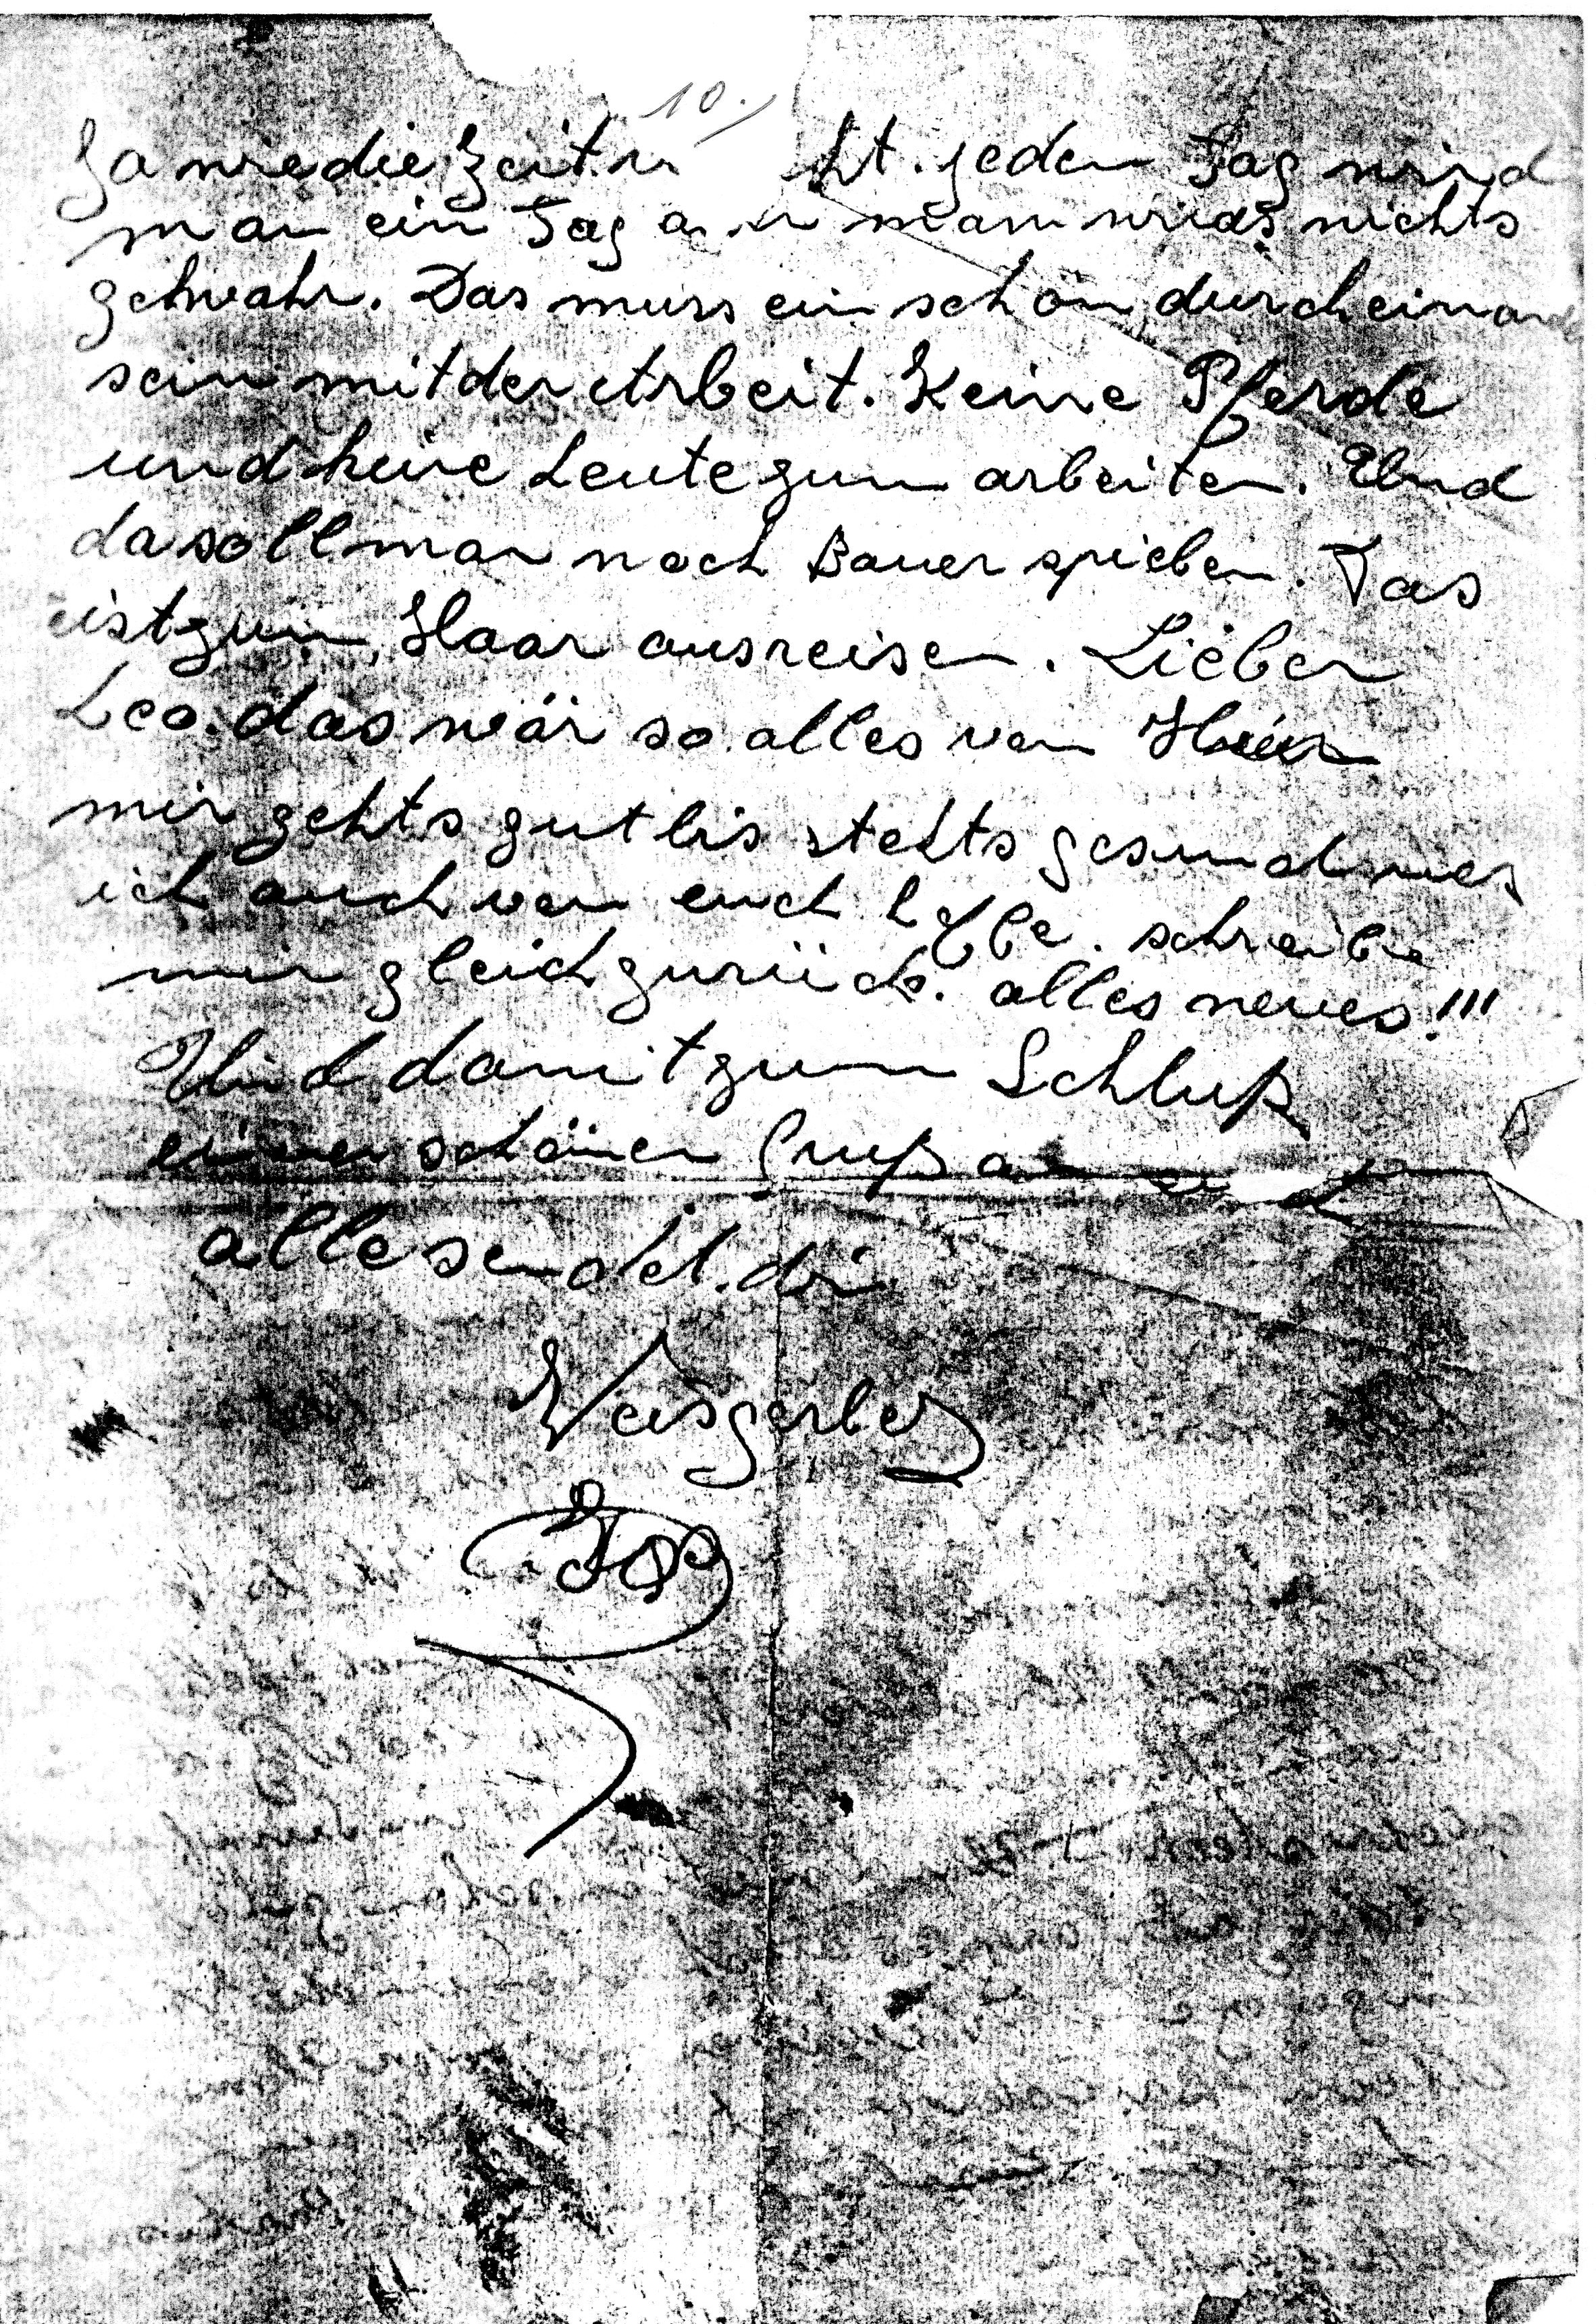 10./
Ja wie die Zeit jeden Tag wird
man ein Tag man wirds nichts
gehwahr. Das muss ein schön durcheinand
sein mit der Arbeit. Keine Pferde
und keine Leute zum arbeiten. Und
da soll man noch Bauer spielen. Das
ist zum Haar ausreisen. Lieber
Leo. das wär so alles von Hier
mir gehts gut bis stehts gesund wies
ich auch von euch hoffe. schreibe
mir gleich zurück. alles neues!!!
Und damit zum Schluß
einen schönen Gruß an euch
alle sendet. dir
Weisgerber